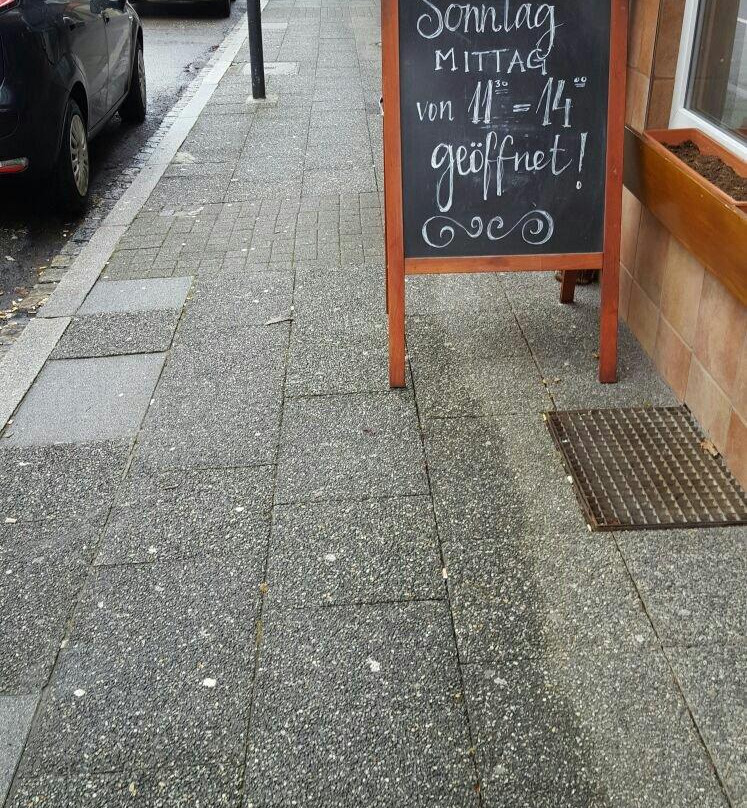 Sonntag
MITTAG
von 11³⁰ = 14⁰⁰
geöffnet!